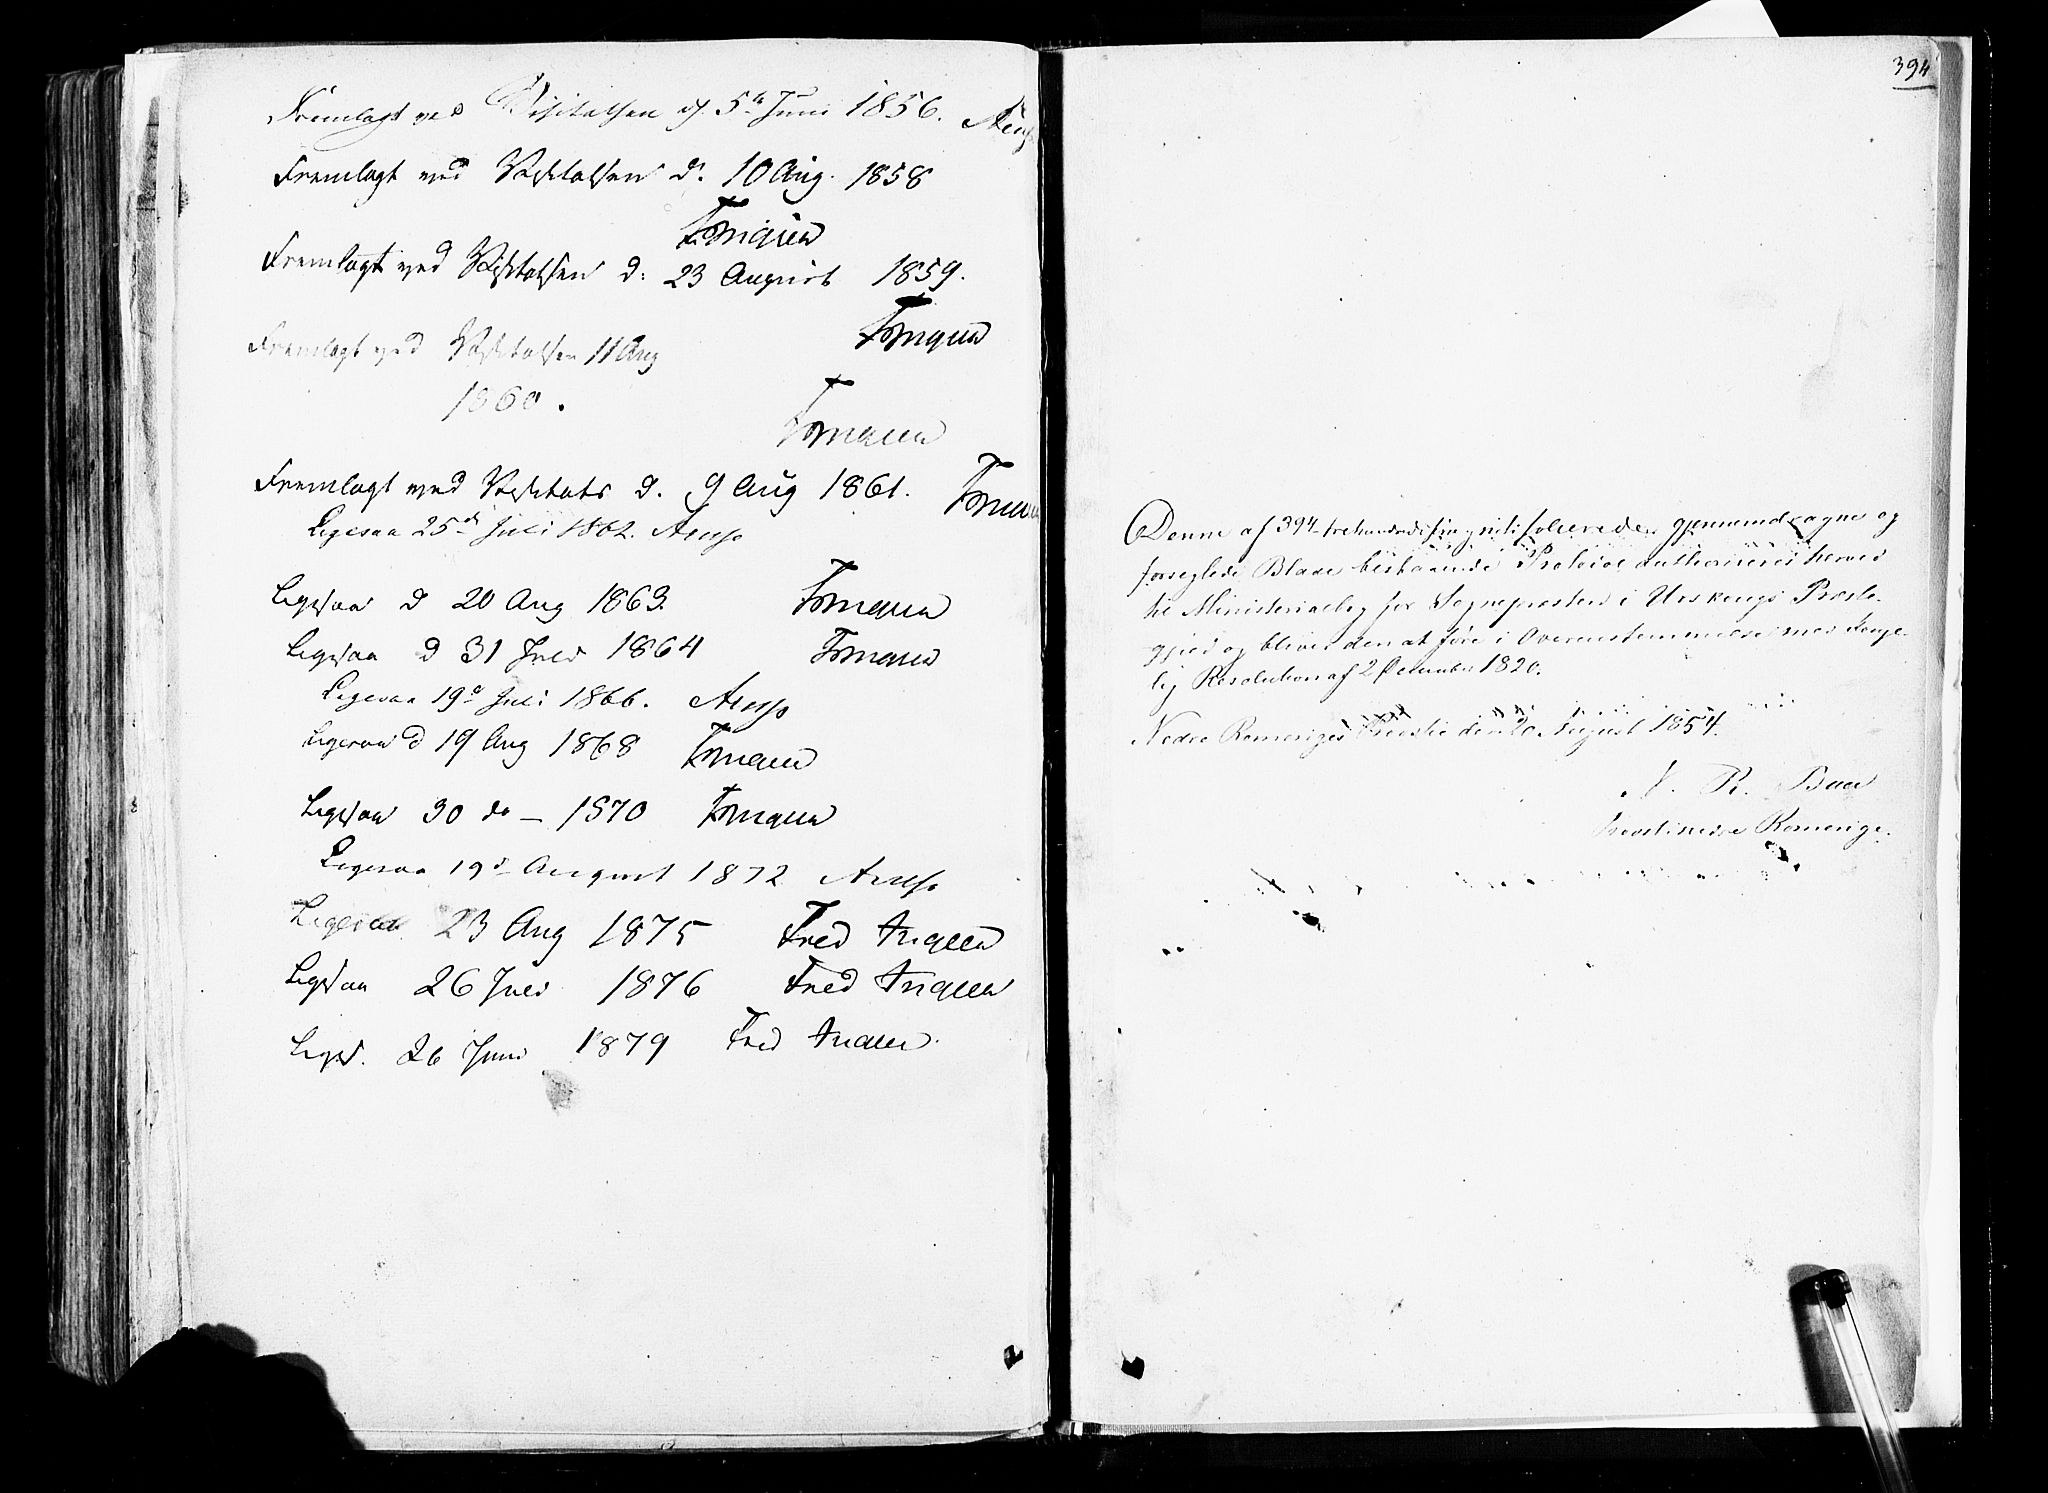 Fremlagt ved Visitatsen d. 5te Juni 1856.
Fremlagt ved Visitatsen d. 10 Aug. 1858
Fremlagt ved Visitatsen d: 23 August 1859.
Fremlagt ved Visitatsen 11 Aug
1860.
Fremlagt ved Visitats d. 9 Aug 1861.
Ligesaa 25de Juli 1862. Arup
Ligesaa d 20 Aug 1863.
Ligesaa d 31 Juli 1864
Ligesaa 19d Juli 1866. Arup
Ligesaa d 19 Aug 1868
Ligesaa 30 do – 1870
Ligesaa 19d August 1872 Arup
Ligesaa 23 Aug 1875 Fred
Ligesaa 26 Juli 1876 Fred
Liges. 26 Juni 1879 Fred
394
Denne af 394 trehundrede fir og niti folierede, gjennemdragne og
forseglede Blade bestaaende Protocol authoriseres herved
til Ministerialbog for Sognepresten i Urskougs Præste-
gjeld og bliver den at føre i Overensstemmelse med Konge-
lig Resolution af 2 December 1820.
Nedre Romeriges Provstie den 20 August 1854.
N. R. Bull
Provst i nedre Romerige.